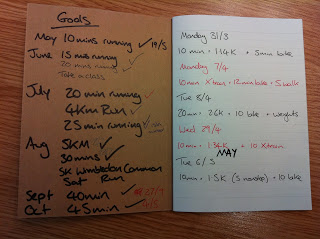 Goals
May 10 mins running ✓ 19/5
June 15 mins running ✓
20 mins running ✓
Take a class
July 20 min running ✓
4km Run ✓
25 min running ✓
Aug 5KM ✓
30 mins ✓
5K Wimbledon Common
Sat Run
Sept 40 min ✓
Oct 45 min ✓
Monday 31/3
10 min = 1.14K + 5min bike
Monday 7/4
10 min Xtrain + 12 min bike + 5 walk
Tue 8/4
20 min 2.6K + 10 bike + weights
Wed 29/4
10 min = 1.34K + 10 Xtrain
MAY
Tue 6/5
10 min = 1.5K (5 nonstop) + 10 bike